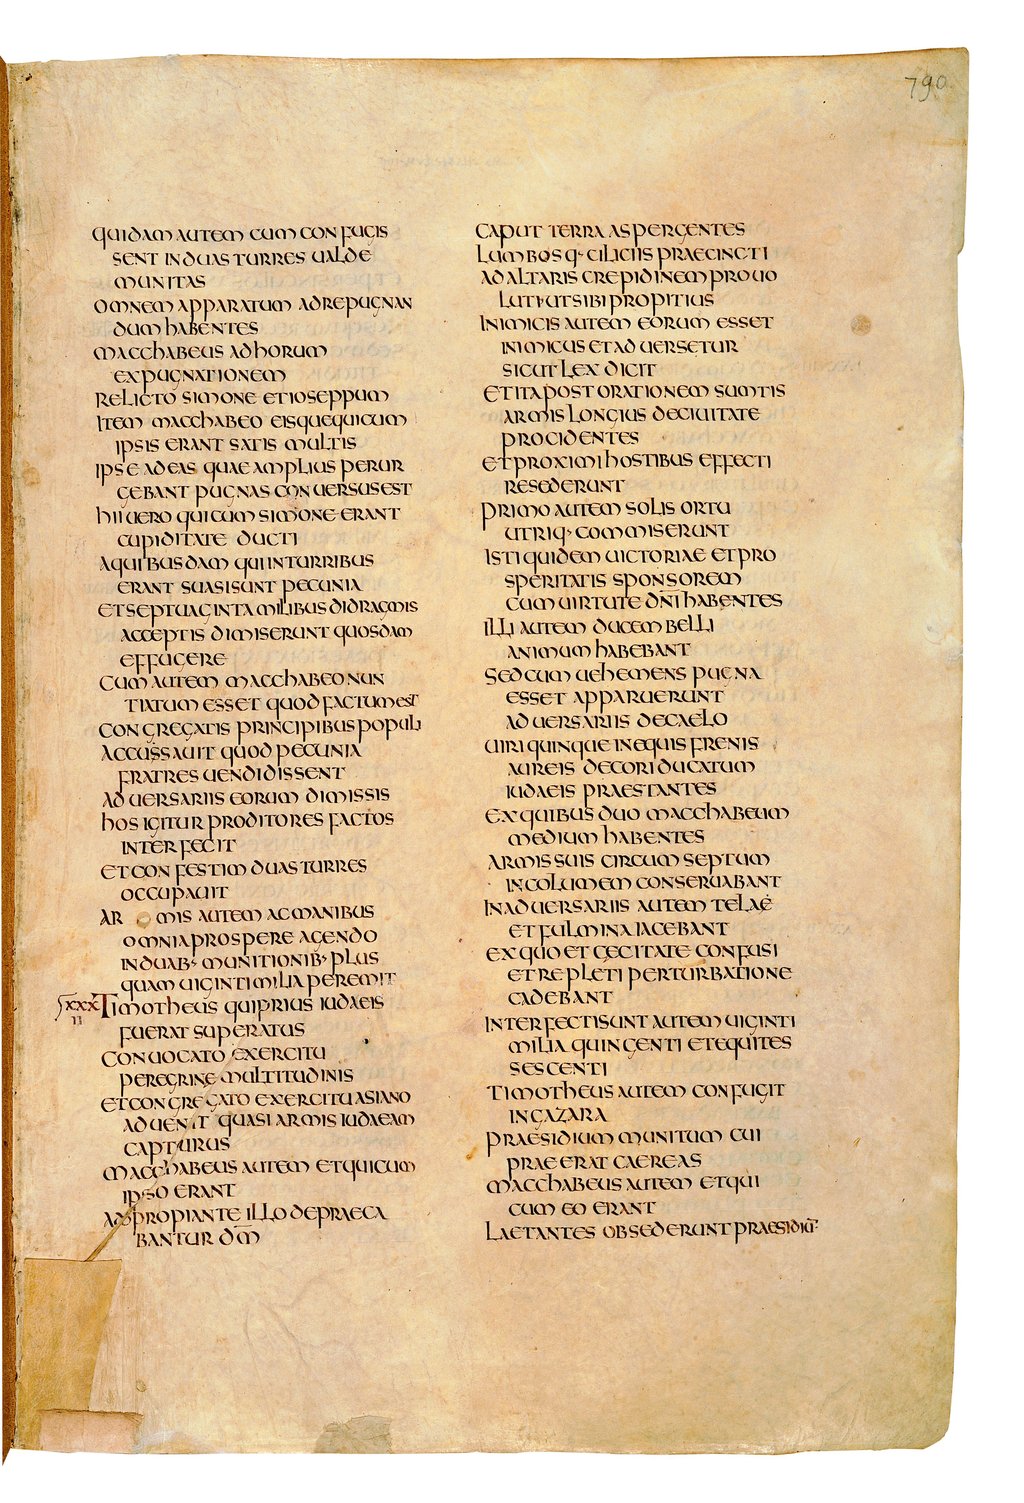 790
quidam autem cum confugis
sent in duas turres ualde
munitas
omnem apparatum ad repugnan
dum habentes
macchabeus ad horum
expugnationem
relicto simone et ioseppum
item macchabeo eisquequicum
ipsis erant satis multis
ipse ad eas quae amplius perur
gebant pugnas conuersus est
hii uero qui cum simone erant
cupiditate ducti
a quibusdam qui in turribus
erant suasi sunt pecunia
et septuaginta milibus didragmis
acceptis dimiserunt quosdam
effugere
cum autem macchabeo nun
tiatum esset quod factum est
congregatis principibus populi
accussauit quod pecunia
fratres uendidissent
aduersariis eorum dimissis
hos igitur proditores factos
interfecit
et confestim duas turres
occupauit
ar mis autem ac manibus
omnia prospere agendo
in duab· munitionib· plus
quam uiginti milia peremit
xxx Timotheus qui prius iudaeis
II
fuerat superatus
conuocato exercitu
peregrine multitudinis
et congregato exercitu asiano
aduenit quasi armis iudaeam
capturus
macchabeus autem et qui cum
ipso erant
adpropiante illo depraeca
bantur dm̅
caput terra aspergentes
lumbosq· ciliciis praecincti
ad altaris crepidinem prouo
luti· ut sibi propitius
inimicis autem eorum esset
inimicus et aduersetur
sicut lex dicit
et ita post orationem sumtis
armis longius de ciuitate
procidentes
et proximi hostibus effecti
resederunt
primo autem solis ortu
utriq· commiserunt
isti quidem uictoriae et pro
speritatis sponsorem
cum uirtute dn̅i habentes
illi autem ducem belli
animum habebant
sed cum uehemens pugna
esset apparuerunt
aduersariis de caelo
uiri quinque in equis frenis
aureis decori ducatum
iudaeis praestantes
ex quibus duo macchabeum
medium habentes
armis suis circum septum
incolumem conseruabant
in aduersariis autem tela e
et fulmina iacebant
ex quo et cecitate confusi
et repleti perturbatione
cadebant
interfecti sunt autem uiginti
milia quingenti et equites
sescenti
timotheus autem confugit
in gazara
praesidium munitum cui
praeerat caereas
macchabeus autem et qui
cum eo erant
laetantes obsederunt praesidiu̅